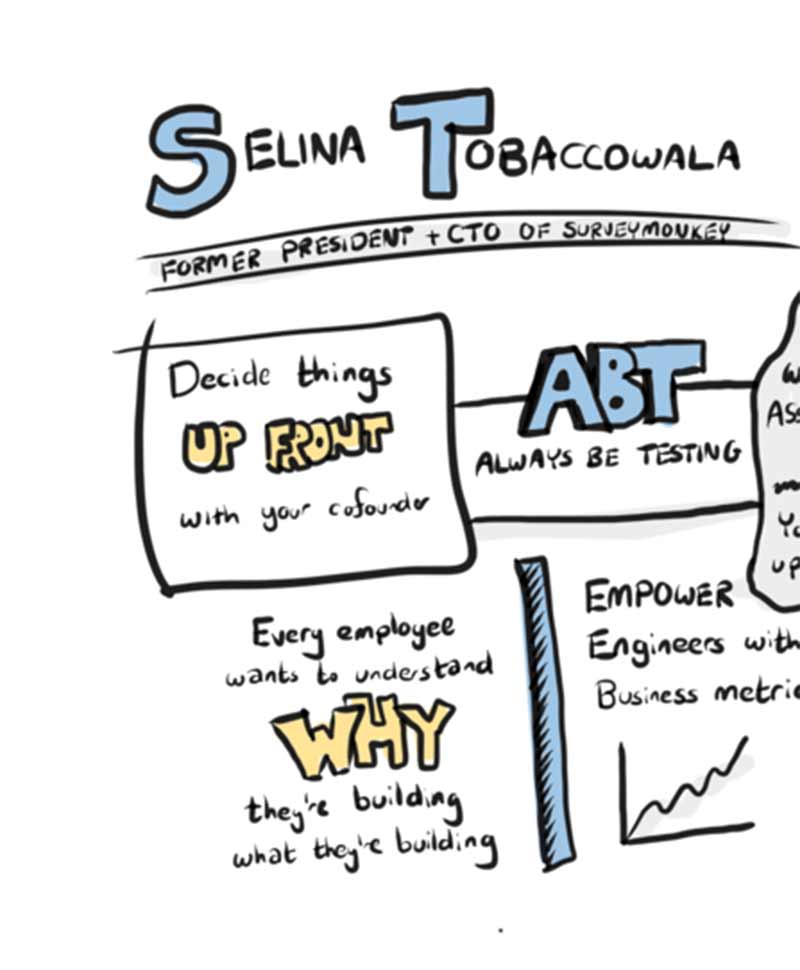 SELINA TOBACCOWALA
FORMER PRESIDENT + CTO OF SURVEYMONKEY
Decide things
UP FRONT
with your cofounder
ABT
ALWAYS BE TESTING
Every employee
wants to understand
WHY
they're building
what they're building
EMPOWER
Engineers with
Business
up